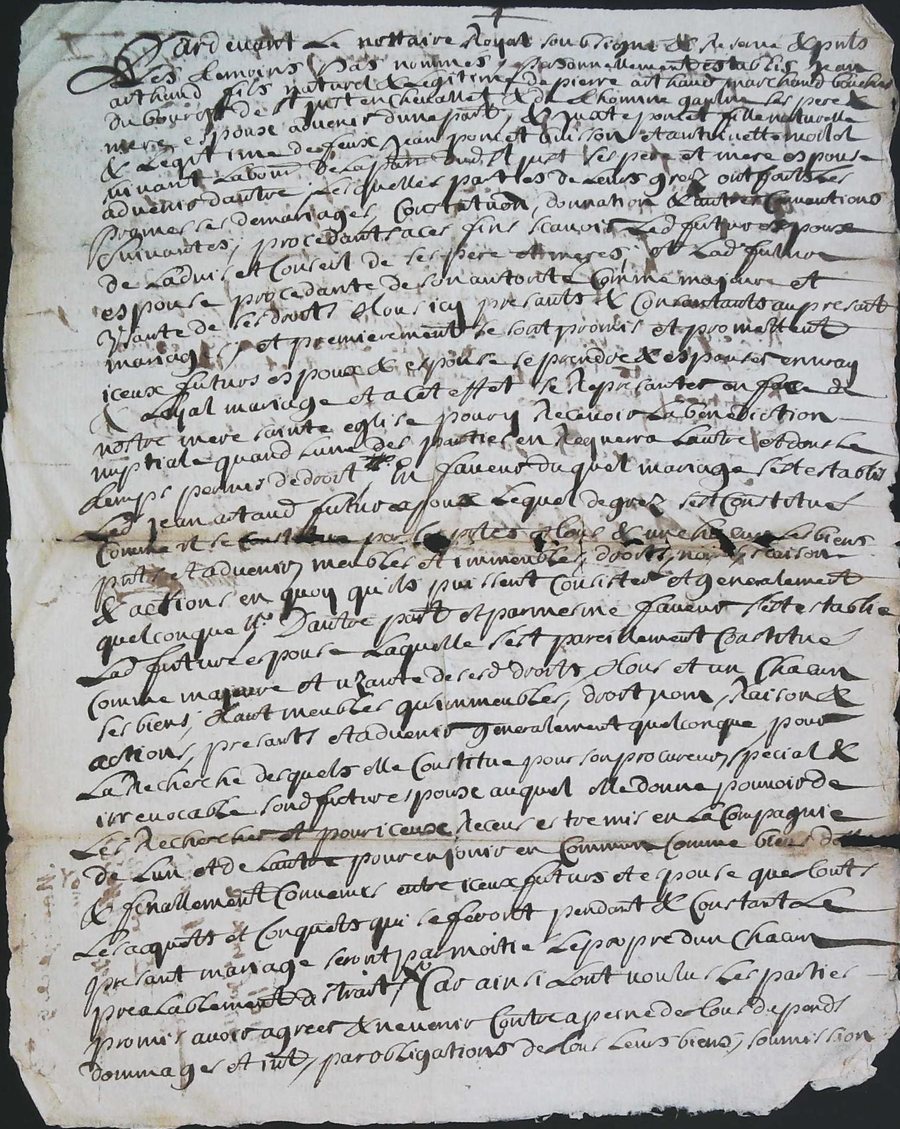 Pardevant Le nottaire Royal soubsigne & Reserve & puis
Les temoins bas nommes, personnellement establis Jean
arthaud fils naturel & Legitime de pierre arthaud marchand boucher
du bourg de st just en chevallet & de lhomme gaulin ses pere &
mere espoux advenir dune part, & poncet fille naturelle
& Legitime de feux Jean poncet et antoinette
vivant Labour de La par dud st just ses pere et mere espouse
advenir dautre, Lesquelles parties de Leurs grez ont faits Les
promesses de mariages, Constitution, donnation & autres Conventions
suivantes, procedants a ces fins scavoir Led futur espoux
de Ladvis et Conseil de ses pere et meres, et Lad future
espouse procedante de son autorite Comme majeure et
uzante de ses droits tous icy presants & Consantants au presant
mariage, et premierement se sont promis et promettent
iceux futurs espoux & espouse se prandre & espouser en vray
& Loyal mariage et a cet effet se Representer en face de
nostre mere sainte eglise pour y Recevoir La benediction
nuptiale quand Lune des parties en Requerra Lautre et dans Le
temps permis de droit En faveur duquel mariage sest establi
Led Jean artaud futur espoux Lequel de grez sest Constitué
Comme il se Constitue par tous & un chacun Les biens
pnts et advenir meubles et immeubles, droits, noms, raison
& actions en quoy quils puissent Consister et generalement
quelconque Dautre part et par mesme faveur sest establie
Lad future espouse Laquelle sest pareillement Constitué
Comme majeure et uzante de ses droits tous et un Chacun
ses biens, tant meubles quimmeubles, droit nom, Raison &
actions, presants et advenir generalement quelconque, pour
La Recherche desquels elle Constitue pour son procureur special &
irrevocable sond futur espoux auquel elle donne pouvoir de
Les Rechercher et pour iceux Receus estre mis en La Compagnie
de Lun et de Lautre pour en jouir en Commun Comme biens
& finallement Convenus entre iceux futurs et espouse que touts
Les acquets et Conquets qui se feront pendant & Constant Le
presant mariage seront par moitie Le propre dun Chacun
prealablement distrait, Car ainsi Lont voulus Les parties
promis avoir agreer & ne venir Contre a peine de tous depends
dommages et int, par obligations de tous Leurs biens, soumission